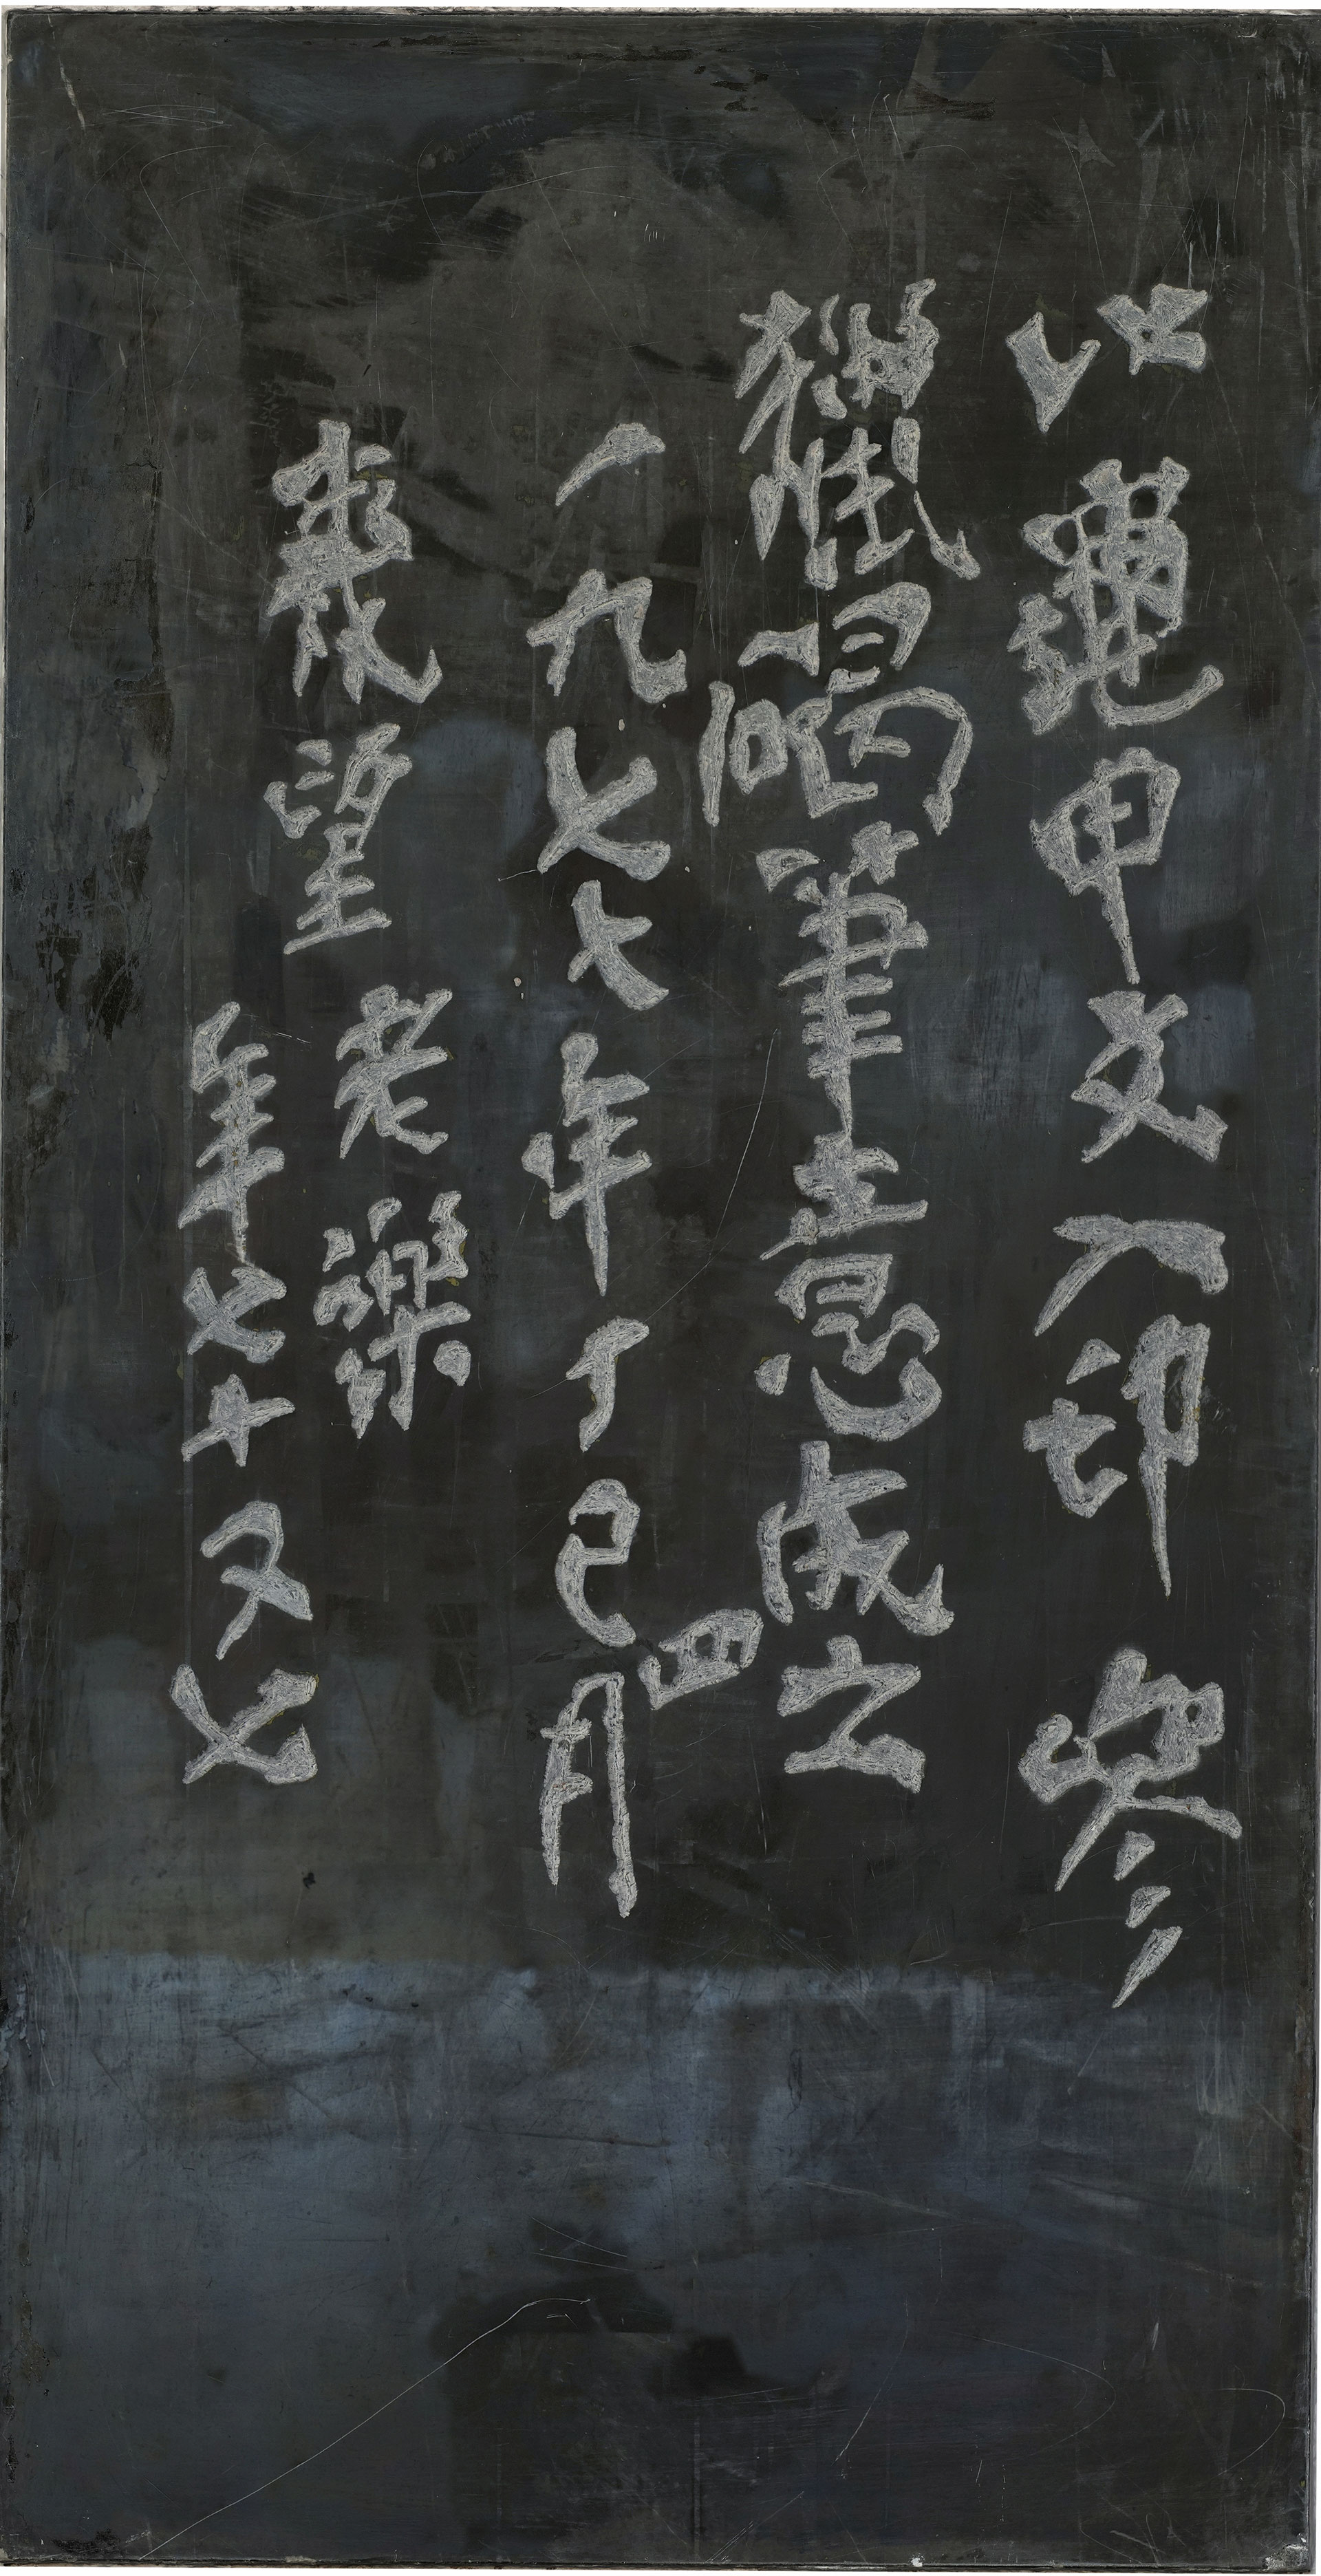 以龜甲文入印 參
獵碣筆意成之
一九七七年丁巳四月
幾望 老樂
年七十又七